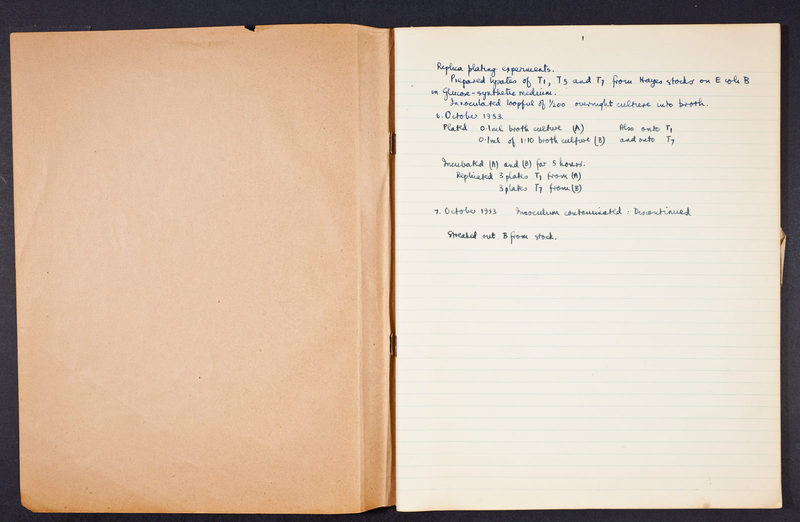 1
Replica plating experiments.
Prepared lysates of T1, T5 and T7 from Hayes stocks on E coli B
in Glucose-synthetic medium.
Innoculated loopful of 1/200 overnight culture into broth.
6. October 1953.
Plated 0.1ml broth culture (A) Also onto T1
0.1ml of 1:10 broth culture (B) and onto T7
Incubated (A) and (B) for 5 hours.
Replicated 3 plates T1 from (A)
3 plates T7 from (B)
7. October 1953 Innoculum contaminated : Discontinued
Streaked out B from stock.